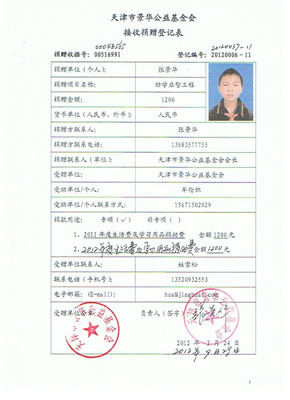 天津市景华公益基金会
接收捐赠登记表
00048535 20120037-11
捐赠收据号: 00516991 登记编号: 20120006-11
捐赠单位(个人): 张景华
捐赠项目名称: 助学启智工程
捐赠金额: 1200
货币单位(人民币、外币): 人民币
捐赠方联系人: 张景华
捐赠方联系电话: 13683577755
捐赠联系人(单位): 天津市景华公益基金会会长
受赠单位: 天津市景华公益基金会
受助单位/个人: 牟伦炽
受助单位/个人联系方式: 15671502029
捐款用途: 专项(√) 非专项( )
1、2011年度生活费及学习用品捐助费 金额 1200元
2、2012年度生活费及学习用品捐助费 金额1200元
受赠单位联系人: 杜雪松
联系电话(手机号) 13520932553
电子邮箱:(E-mail):
受赠单位公章: 负责人(签字):
2012 年 2 月 24 日
2012年9月29日
1